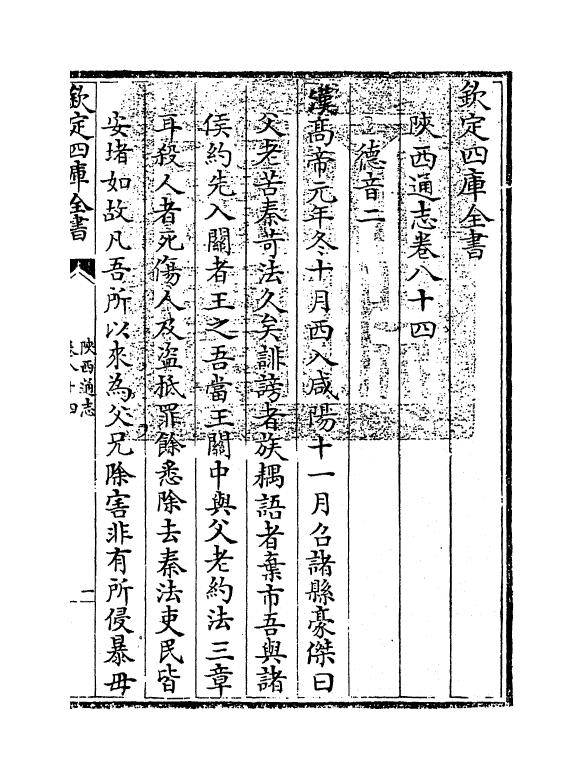 欽定四庫全書
陜西通志卷八十四
德音二
漢髙帝元年冬十月西入咸陽十一月召諸縣豪傑曰
父老苦秦苛法久矣誹謗者族耦語者棄市吾與諸
侯約先入關者王之吾當王關中與父老約法三章
耳殺人者死傷人及盜抵罪餘悉除去秦法吏民皆
安堵如故凡吾所以來為父兄除害非有所侵暴毋
欽定四庫全書
陜西通志
卷八十四
一